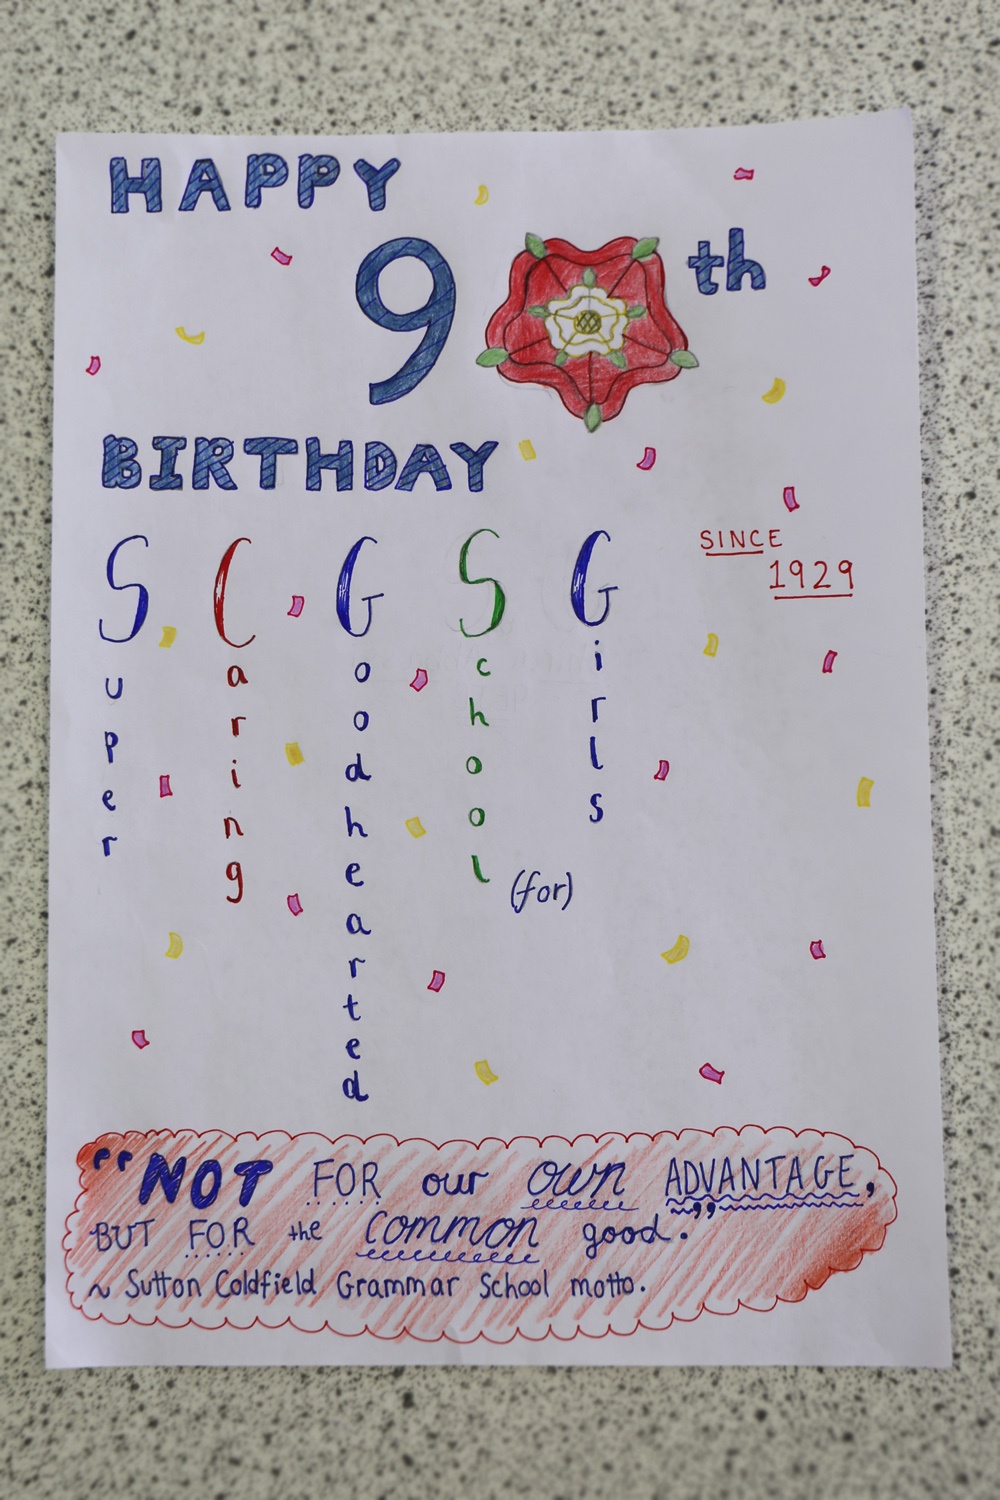 HAPPY
9 th
BIRTHDAY
SINCE
1929
Super
Caring
Goodhearted
School
(for)
Girls
“NOT FOR our own ADVANTAGE,
BUT FOR the common good.”
~ Sutton Coldfield Grammar School motto.